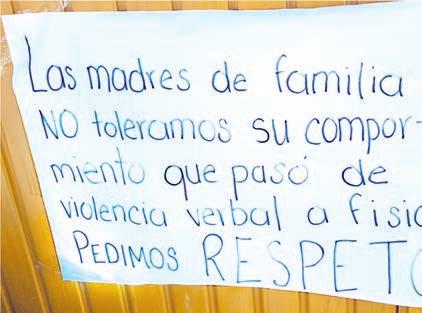 Las madres de familia
NO toleramos su compor-
miento que pasó de
violencia verbal a fisic
PEDIMOS RESPETO